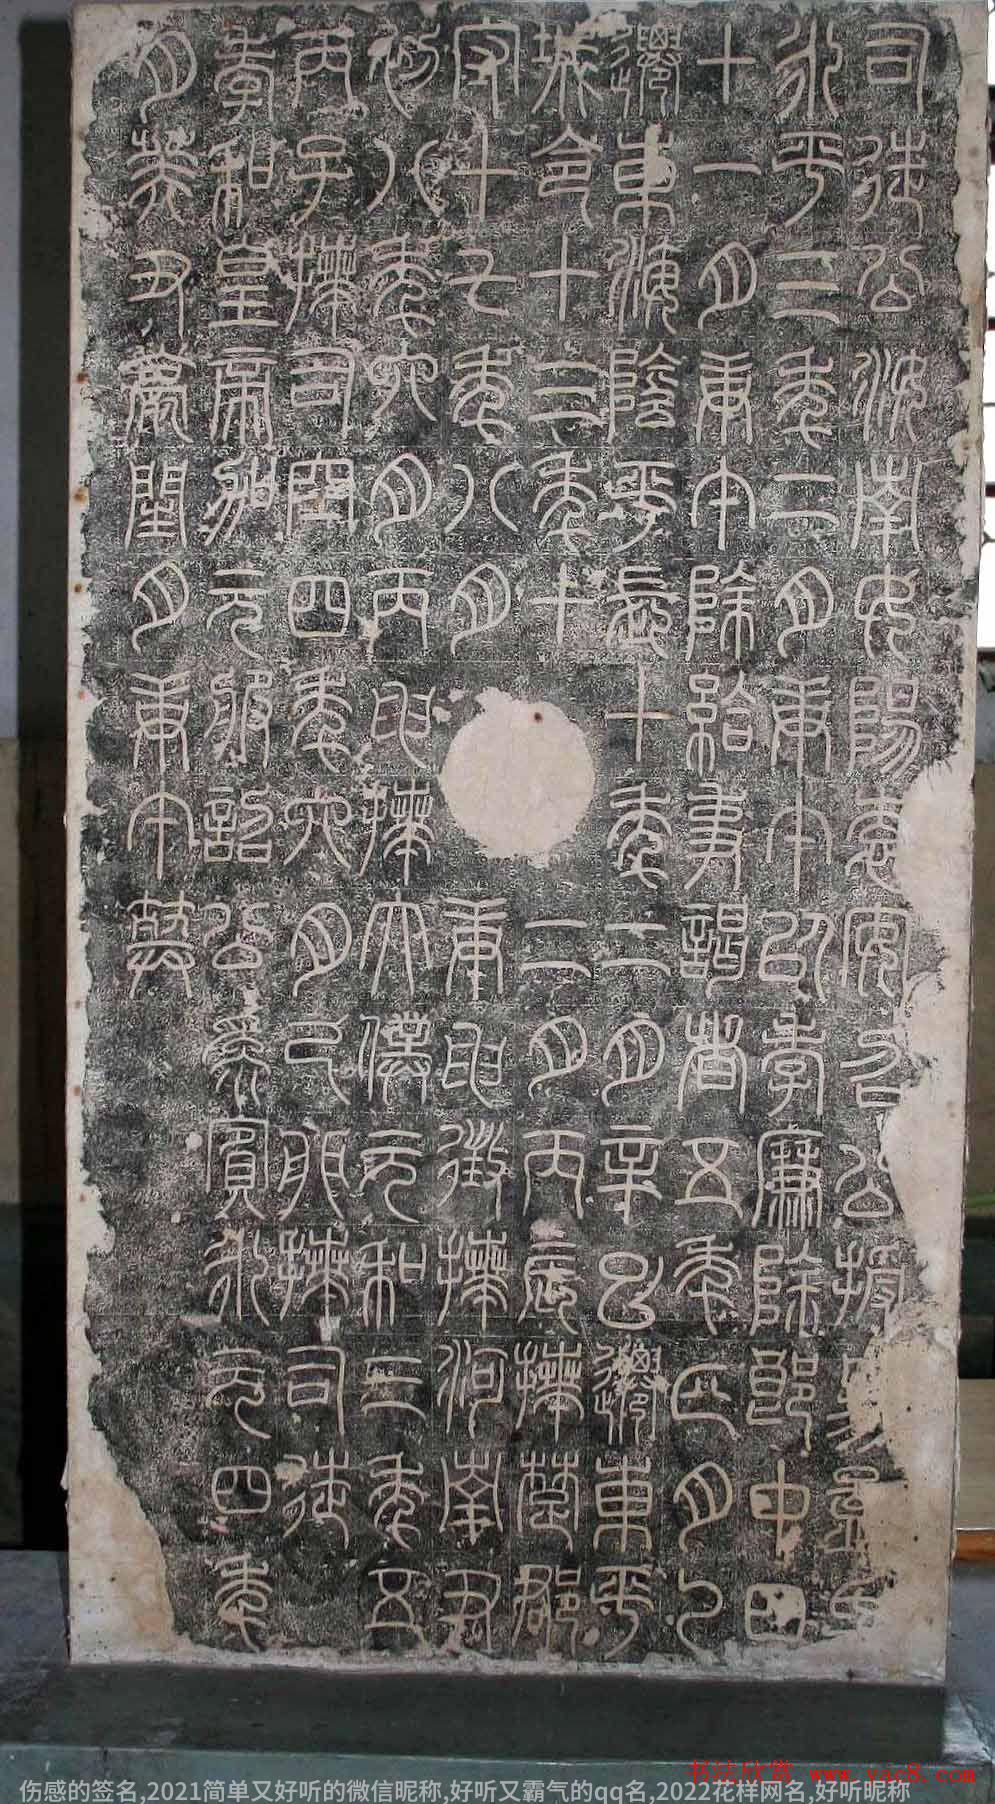 司徒公汝南女陽袁安召公授易孟氏
永平三年二月庚午以孝廉除郎中四
十一月庚午除給事謁者五年正月乙
遷東海陰平長十年二月辛巳遷東平
城令十三年十二月丙辰拜楚郡
守十七年八月庚申徵拜河南尹
初八年六月丙申拜太僕元和三年五
丙子拜司空四年六月己卯拜司徒
孝和皇帝加元服詔公為賓永元四年
月癸丑薨閏月庚午葬
书法欣赏 www.yac8.com
伤感的签名,2021简单又好听的微信昵称,好听又霸气的qq名,2022花样网名,好听昵称